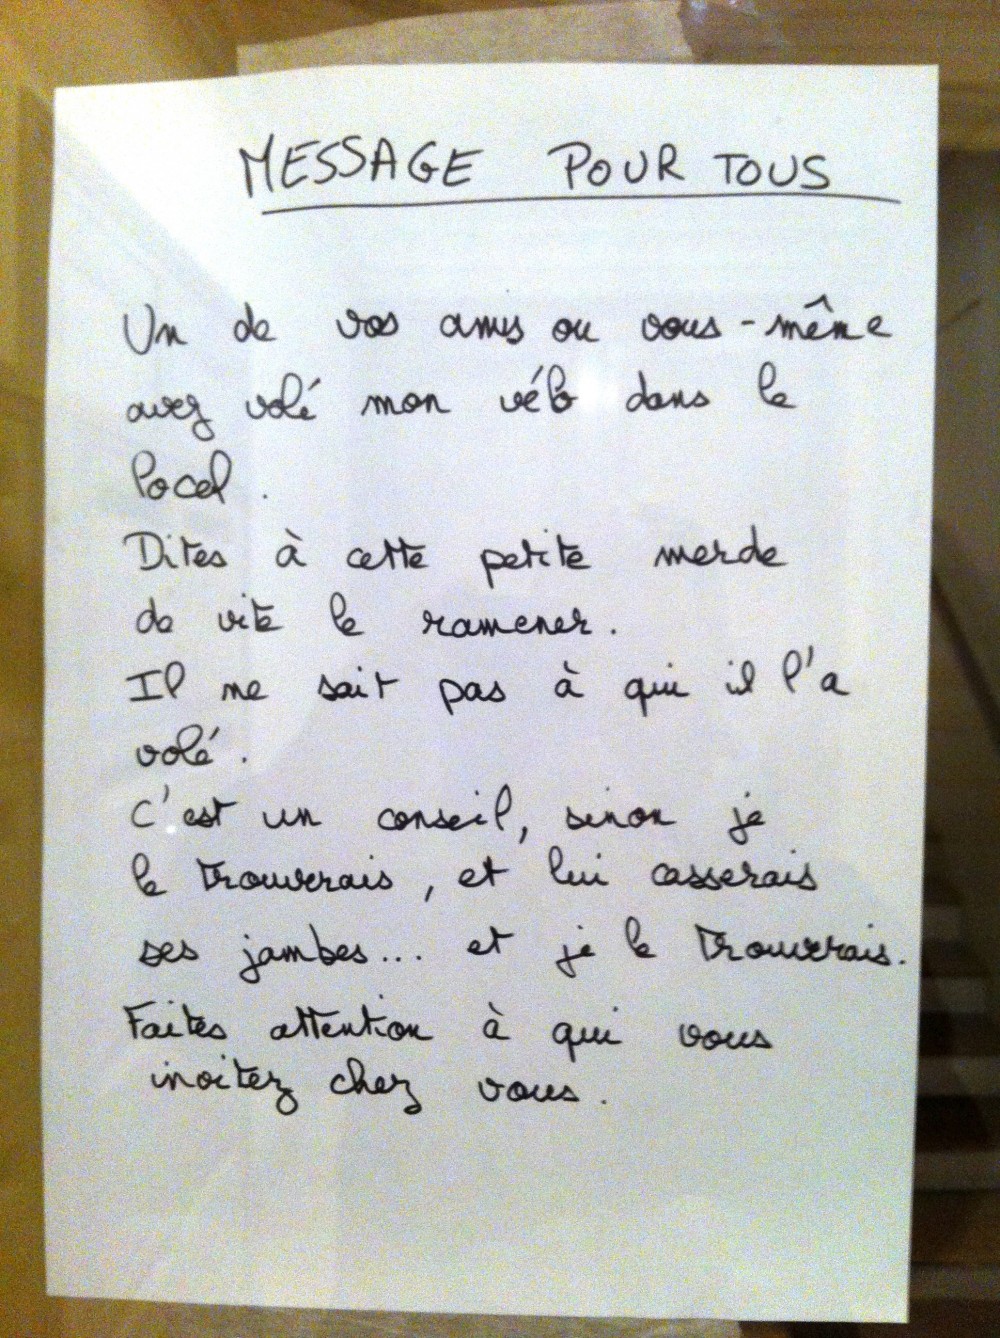 MESSAGE POUR TOUS
Un de vos amis ou vous-même
avez volé mon vélo dans le
local.
Dites à cette petite merde
de vite le ramener.
Il ne sait pas à qui il l'a
volé.
C'est un conseil, sinon je
le trouverais, et lui casserais
ses jambes... et je le trouverais.
Faites attention à qui vous
invitez chez vous.